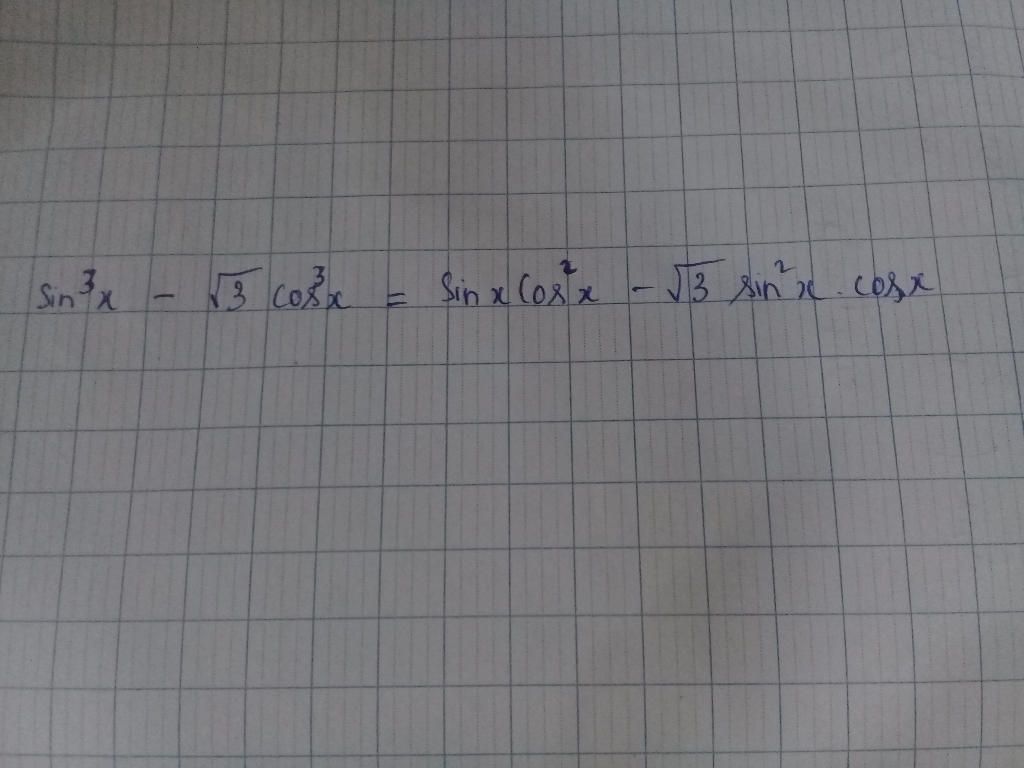 sin³x - √3 cos³x = sin x cos²x - √3 sin²x . cosx